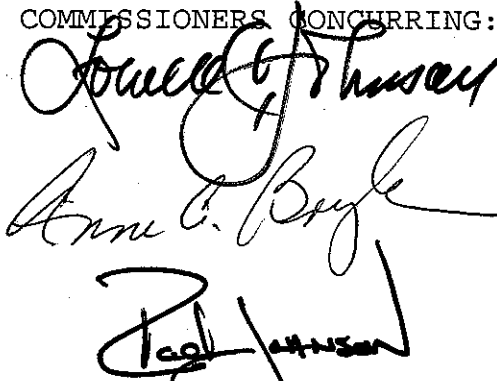 COMMISSIONERS CONCURRING:
Lowell C. Johnson
Anne C. Boyle
Rod Johnson